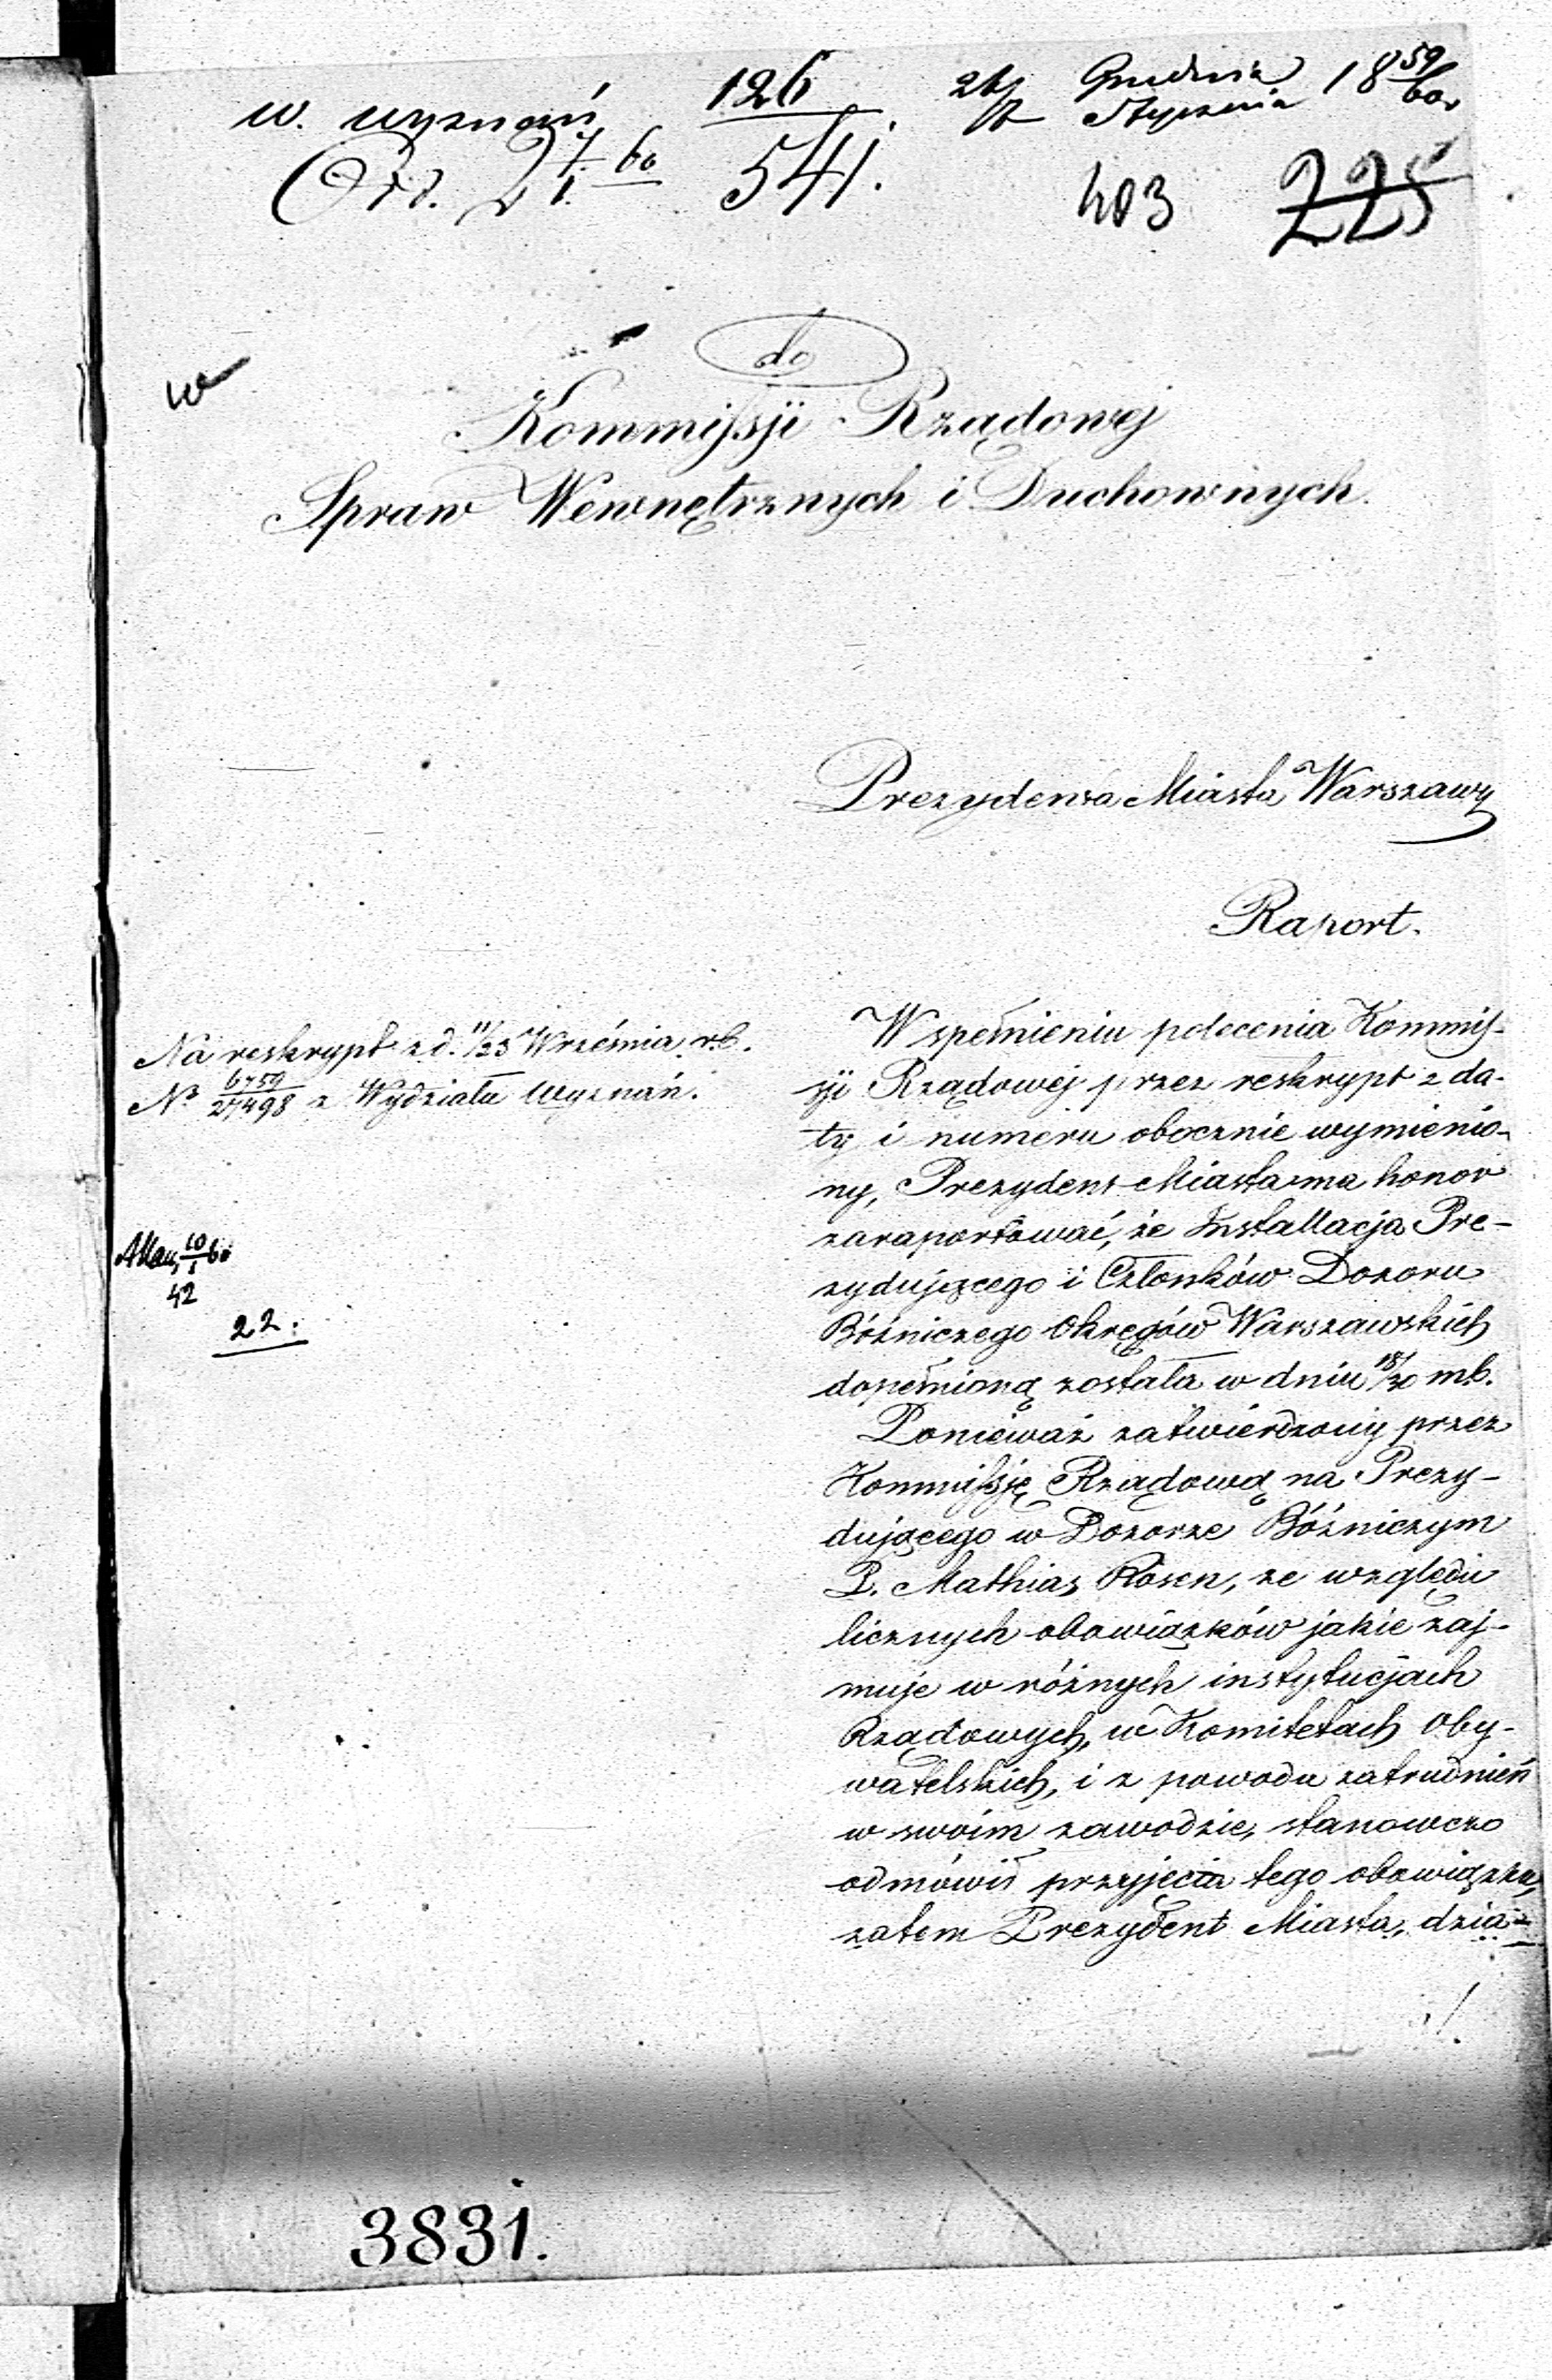 w. wyznań 126/541. 24/5 Grudnia/Stycznia 18 59/60
Od. 2 7/1 60
403 225
do
Kommissji Rządowej
Spraw Wewnętrznych i Duchownych.
Prezydenta Miasta Warszawy
Raport.
Na reskrypt z d. 11/23 Września r.b.
No 6759/27498 z Wydziału Wyznań.
10/1 60
42
22.
W spełnieniu polecenia Kommis-
sji Rządowej przez reskrypt z da-
ty i numeru obocznie wymienio-
ny, Prezydent Miasta ma honor
zaraportować, że Installacja Pre-
zydującego i Członków Dozoru
Bóżniczego Okręgów Warszawskich
dopełnioną została w dniu 18/30 m.b.
Ponieważ zatwierdzony przez
Kommissję Rządową na Prezy-
dującego w Dozorze Bóżniczym
P. Mathias Rosen, ze względu
licznych obowiązków jakie zaj-
muje w różnych instytucjach
Rządowych, w Komitetach Oby-
watelskich, i z powodu zatrudnień
w swoim zawodzie, stanowczo
odmówił przyjęcia tego obowiązku,
zatem Prezydent Miasta, dzia-
./.
3831.